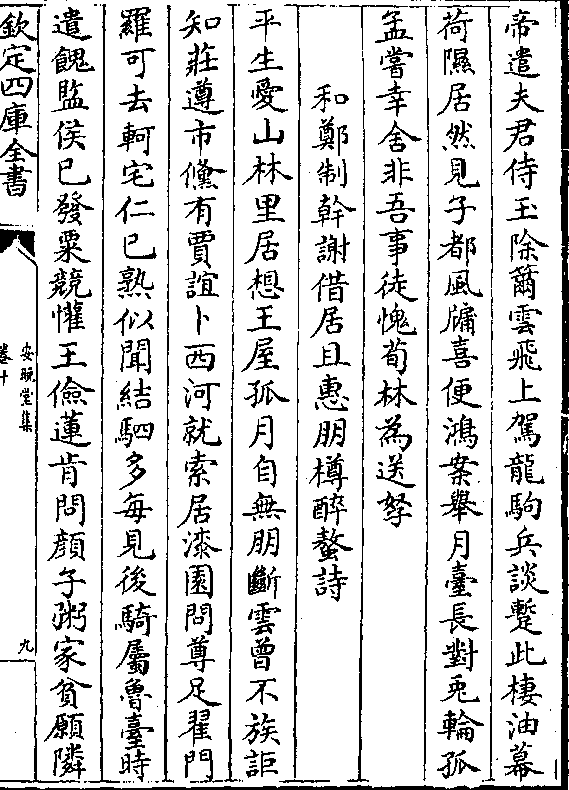 帝遣夫君侍玉除爾雲飛上駕龍駒兵談蹔此棲油幕
荷隰居然見子都風牗喜便鴻案舉月臺長對兎輪孤
孟嘗幸舍非吾事徒愧荀林為送孥
和鄭制幹謝借居且惠朋樽醉螯詩
平生愛山林里居想王屋孤月自無朋斷雲曾不族詎
知莊遵市儻有賈誼卜西河就索居漆園問尊足翟門
羅可去軻宅仁已熟似聞結駟多每見後騎屬魯臺時
遺餽監侯已發粟競懽王儉蓮肯問顔子粥家貧願隣
欽定四庫全書
安晚堂集
卷十
九